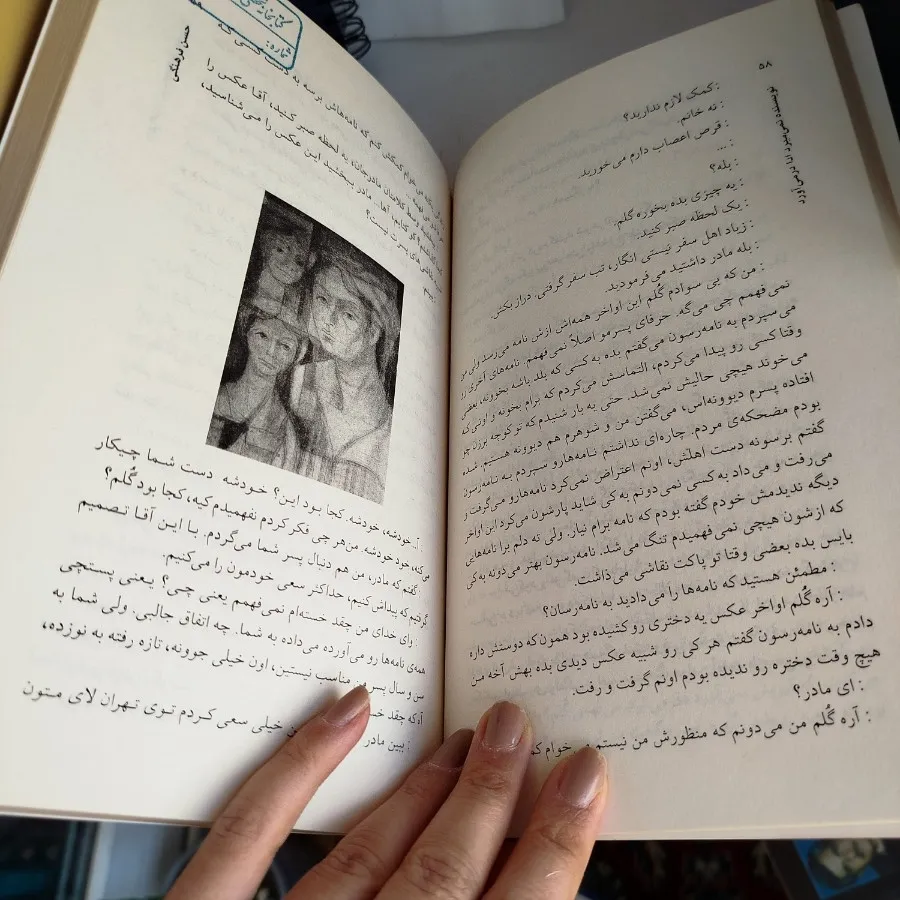 ۵۸
نویسنده نمی‌میرد ادا درمی‌آورد
: کمک لازم ندارید؟
: نه خانم.
: قرص اعصاب دارم می‌خورید.
: ...
: بله؟
: یه چیزی بده بخوره گلم.
: یک لحظه صبر کنید.
: زیاد اهل سفر نیستی انگار، تب سفر گرفتی. دراز بکش.
: بله مادر داشتید می‌فرمودید.
: من که بی سوادم گُلم این اواخر همه‌اش ازش نامه می‌رسد ولی من
نمی‌فهمم چی می‌گه. حرفای پسرمو اصلاً نمی‌فهمم. نامه‌های آخری رو
می‌سپردم به نامه‌رسون می‌گفتم بده به کسی که بلد باشه بخوونه، بعضی
وقتا کسی رو پیدا می‌کردم، التماسش می‌کردم که برام بخونه و اونی که
می‌خوند هیچی حالیش نمی‌شد. حتی یه بار شنیدم که تو کوچه برزن چو
افتاده پسرم دیوونه‌اس، می‌گفتن من و شوهرم هم دیوونه هستیم. شده
بودم مضحکه‌ی مردم. چاره‌ای نداشتم نامه‌هارو سپردم به نامه‌رسون
گفتم برسونه دست اهلش، اونم اعتراض نمی‌کرد نامه‌هارو می‌گرفت و
می‌رفت و می‌داد به کسی نمی‌دونم به کی شاید پارشون می‌کرد این اواخر
دیگه ندیدمش خودم گفته بودم که نامه برام نیار. ولی ته دلم برا نامه‌هایی
که ازشون هیچی نمی‌فهمیدم تنگ می‌شد. نامه‌رسون بهتر می‌دونه به کی
بایس بده بعضی وقتا تو پاکت نقاشی می‌ذاشت.
: مطمئن هستید که نامه‌ها را می‌دادید به نامه‌رسان؟
: آره گُلم اواخر عکس یه دختری رو کشیده بود همون که دوستش داره
دادم به نامه‌رسون گفتم هر کی رو شبیه عکس دیدی بده بهش آخه من
هیچ وقت دختره رو ندیده بودم اونم گرفت و رفت.
: ای مادر؟
: آره گُلم من می‌دونم که منظورش من نیستم خوام
حسن فرهنگی
شماره:
می‌خوام کمکش کنم که نامه‌هاش برسه به
لحظه صبر کنید، آقا عکس را
وسط کلامتان مادرجان، یه
کو کتابم، آها... مادر ببخشید این عکس را می‌شناسید،
های پسرت نیست؟
: ببینم
: آ...خودشه، خودشه. کجا بود این؟ خودشه دست شما چیکار
می‌کنه، خود خودشه. من هر چی فکر کردم نفهمیدم کیه، کجا بود گُلم؟
: گفتم که مادر، من هم دنبال پسر شما می‌گردم. با این آقا تصمیم
گرفتیم که پیداش کنیم، حداکثر سعی خودمون را می‌کنیم.
: وای خدای من چقد خسته‌ام نمی‌فهمم یعنی چی؟ یعنی پستچی
همه‌ی نامه‌ها رو می‌آورده می‌داده به شما. چه اتفاق جالبی. ولی شما به
سن و سال پسر مناسب نیستین، اون خیلی جوونه، تازه رفته به نوزده،
آه که چقد
: ببین مادر خیلی سعی کردم توی تهران لای متون